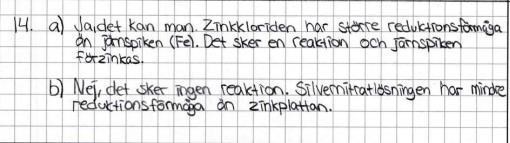 14. a) Ja, det kan man. Zinkkloriden har större reduktionsförmåga
än järnspiken (Fe). Det sker en reaktion och järnspiken
förzinkas.
b) Nej, det sker ingen reaktion. Silvernitratlösningen har mindre
reduktionsförmåga än zinkplattan.